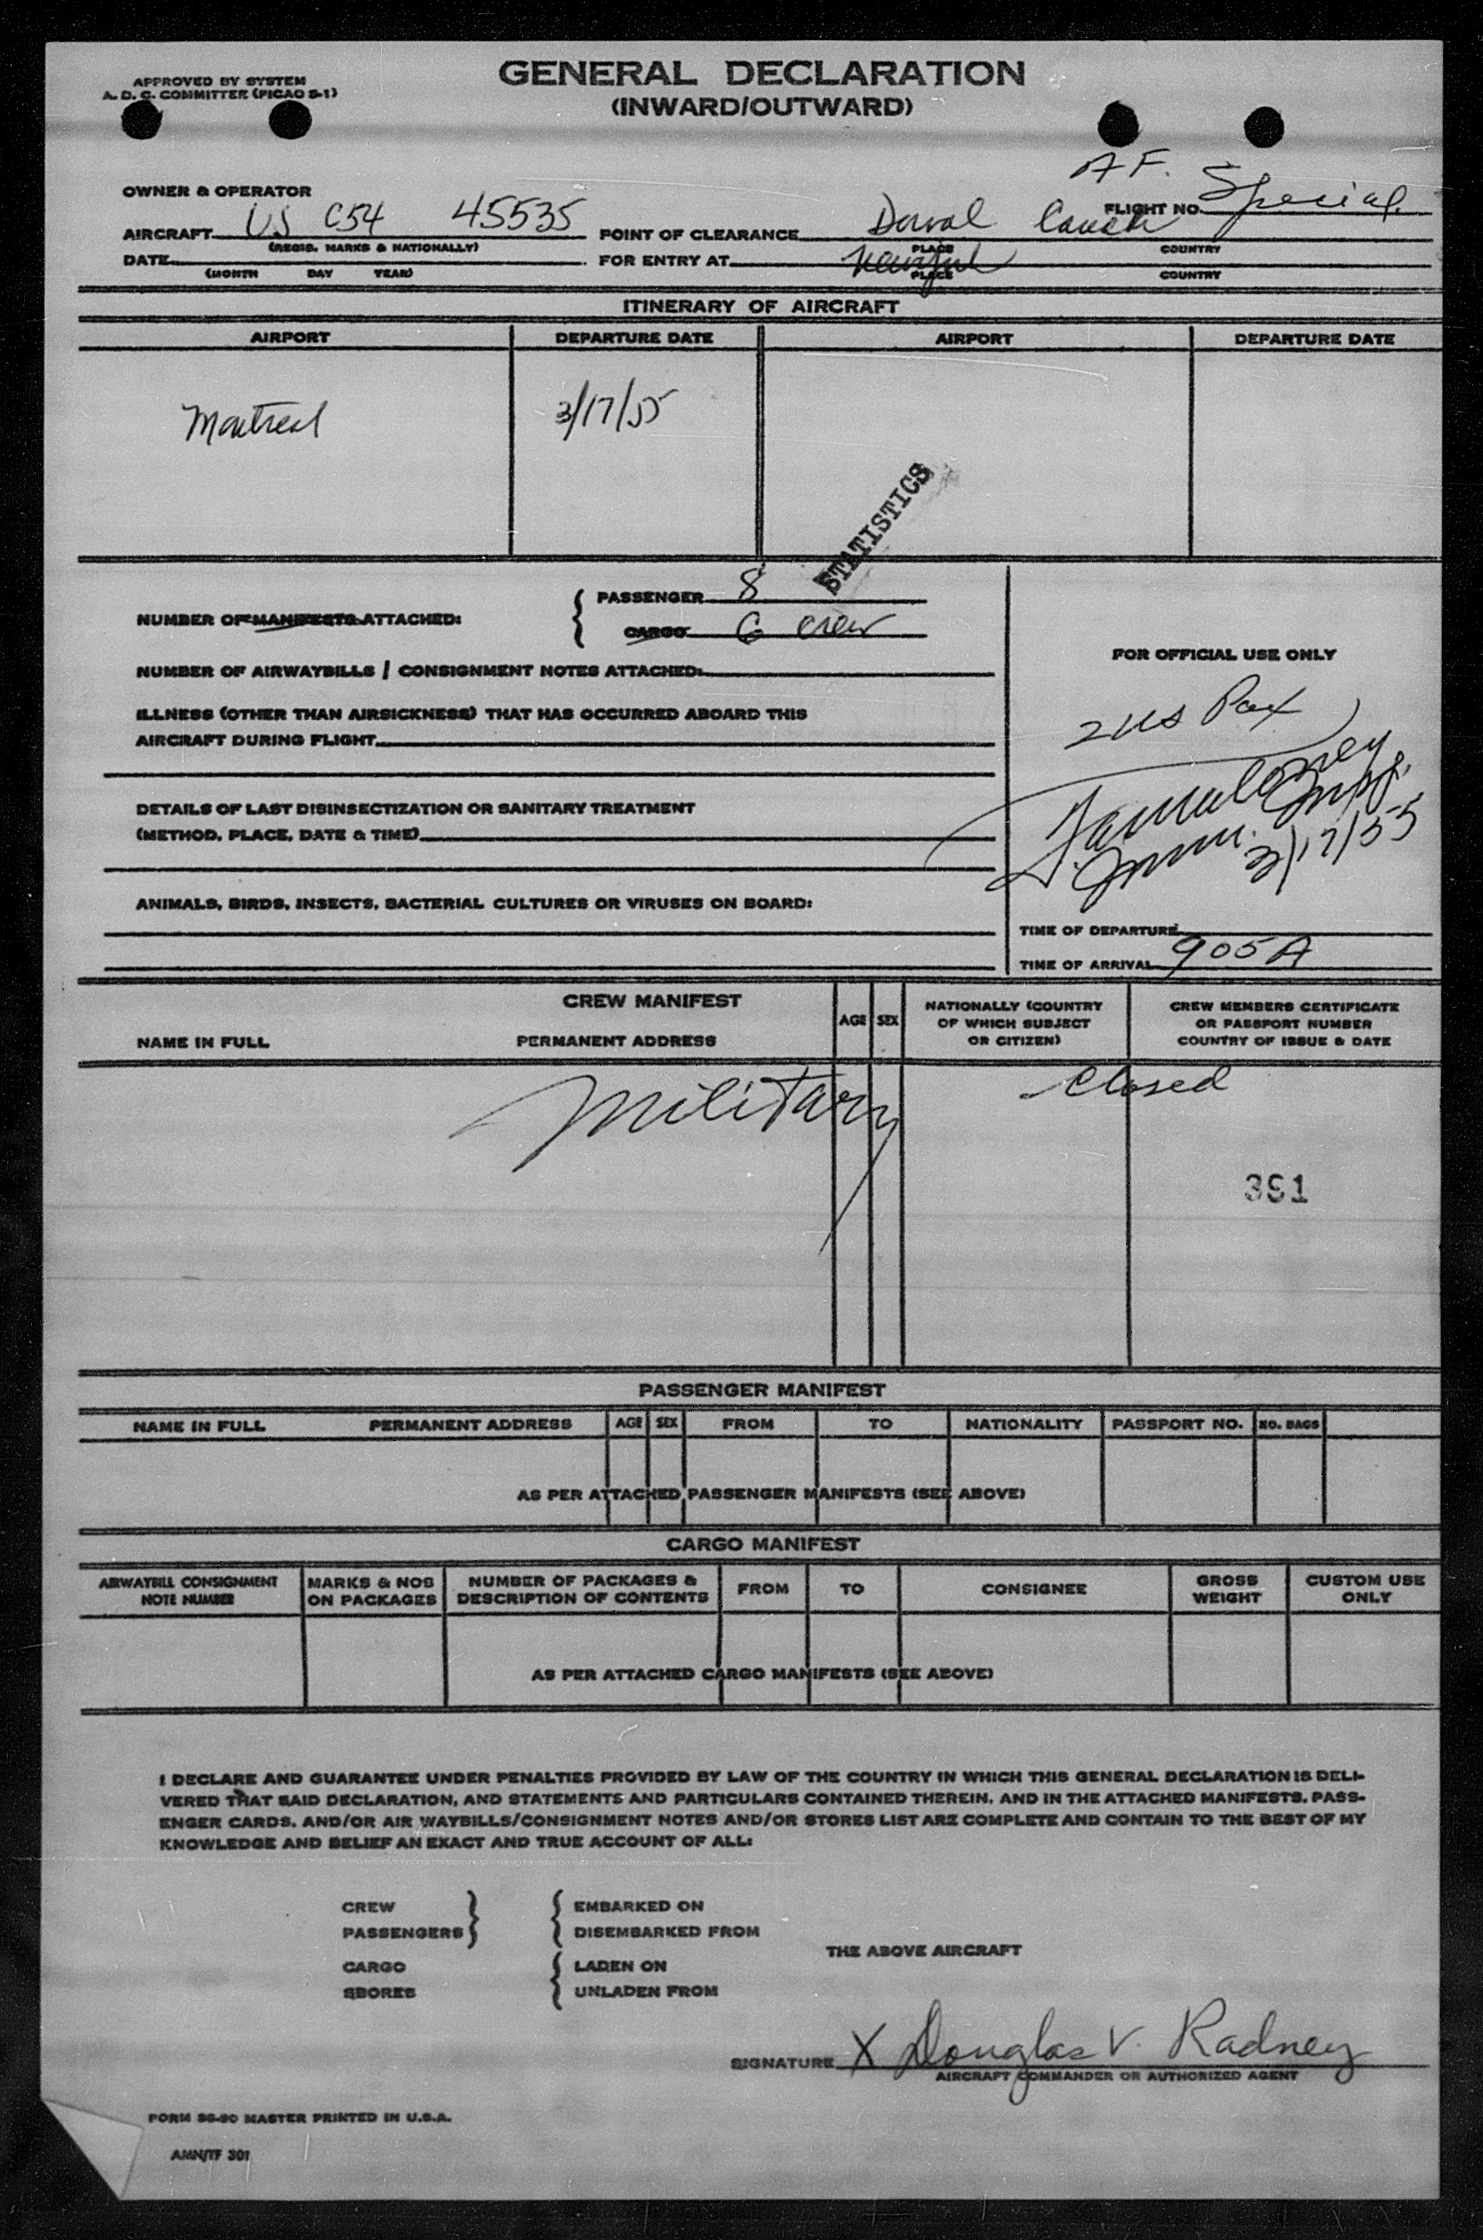 APPROVED BY SYSTEM
A. D. C. COMMITTEE (PICAO S-1)
GENERAL DECLARATION
(INWARD/OUTWARD)
A F.
OWNER & OPERATOR
FLIGHT NO. Special
AIRCRAFT US C54 45535 POINT OF CLEARANCE Dorval
(REGIS. MARKS & NATIONALLY) PLACE COUNTRY
DATE FOR ENTRY AT
(MONTH DAY YEAR) PLACE COUNTRY
ITINERARY OF AIRCRAFT
AIRPORT DEPARTURE DATE AIRPORT DEPARTURE DATE
Montreal 3/17/55
STATISTICS
NUMBER OF MANIFESTS ATTACHED:
PASSENGER 8
CARGO 6 crew
NUMBER OF AIRWAYBILLS / CONSIGNMENT NOTES ATTACHED:
ILLNESS (OTHER THAN AIRSICKNESS) THAT HAS OCCURRED ABOARD THIS
AIRCRAFT DURING FLIGHT
DETAILS OF LAST DISINSECTIZATION OR SANITARY TREATMENT
(METHOD, PLACE, DATE & TIME)
ANIMALS, BIRDS, INSECTS, BACTERIAL CULTURES OR VIRUSES ON BOARD:
FOR OFFICIAL USE ONLY
2 US Pax
Imm. Insp.
3/17/55
TIME OF DEPARTURE
TIME OF ARRIVAL 905 A
CREW MANIFEST
NAME IN FULL PERMANENT ADDRESS AGE SEX
NATIONALLY (COUNTRY
OF WHICH SUBJECT
OR CITIZEN)
CREW MEMBERS CERTIFICATE
OR PASSPORT NUMBER
COUNTRY OF ISSUE & DATE
Military closed
391
PASSENGER MANIFEST
NAME IN FULL PERMANENT ADDRESS AGE SEX FROM TO NATIONALITY PASSPORT NO. NO. BAGS
AS PER ATTACHED PASSENGER MANIFESTS (SEE ABOVE)
CARGO MANIFEST
AIRWAYBILL CONSIGNMENT
NOTE NUMBER
MARKS & NOS
ON PACKAGES
NUMBER OF PACKAGES &
DESCRIPTION OF CONTENTS
FROM TO CONSIGNEE
GROSS
WEIGHT
CUSTOM USE
ONLY
AS PER ATTACHED CARGO MANIFESTS (SEE ABOVE)
I DECLARE AND GUARANTEE UNDER PENALTIES PROVIDED BY LAW OF THE COUNTRY IN WHICH THIS GENERAL DECLARATION IS DELI-
VERED THAT SAID DECLARATION, AND STATEMENTS AND PARTICULARS CONTAINED THEREIN, AND IN THE ATTACHED MANIFESTS, PASS-
ENGER CARDS, AND/OR AIR WAYBILLS/CONSIGNMENT NOTES AND/OR STORES LIST ARE COMPLETE AND CONTAIN TO THE BEST OF MY
KNOWLEDGE AND BELIEF AN EXACT AND TRUE ACCOUNT OF ALL:
CREW EMBARKED ON
PASSENGERS DISEMBARKED FROM
THE ABOVE AIRCRAFT
CARGO LADEN ON
SBORES UNLADEN FROM
SIGNATURE X Douglas V. Radney
AIRCRAFT COMMANDER OR AUTHORIZED AGENT
FORM 86-90 MASTER PRINTED IN U.S.A.
AMN/TF 301